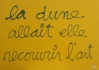 la dune
allait elle
recouvrir l'art